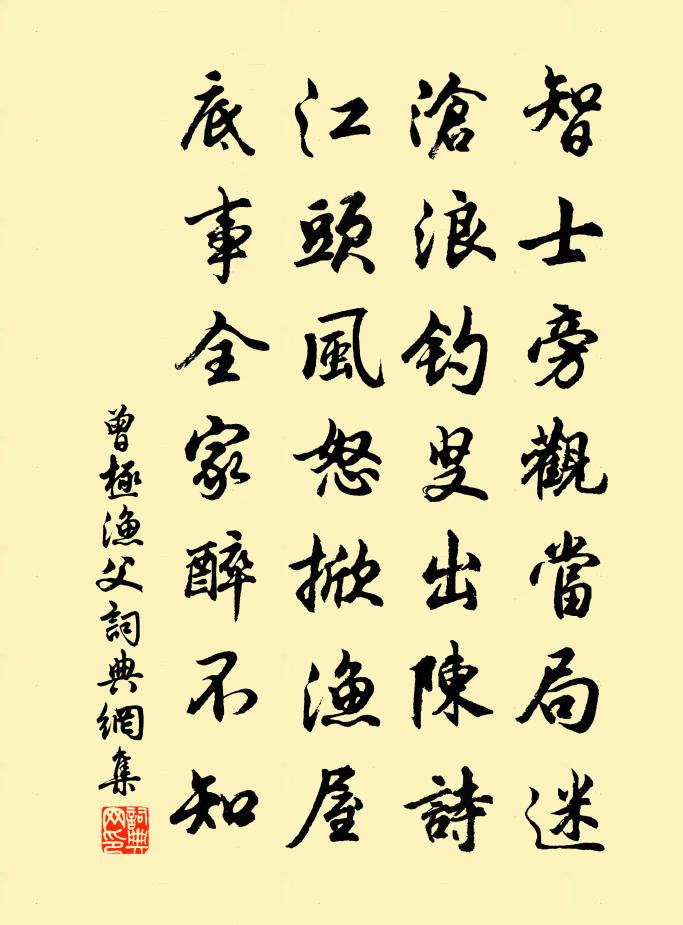 智士旁觀當局迷
滄浪釣叟出陳詩
江頭風怒掀漁屋
底事全家醉不知
曾極漁父詞典網集
詞典网印